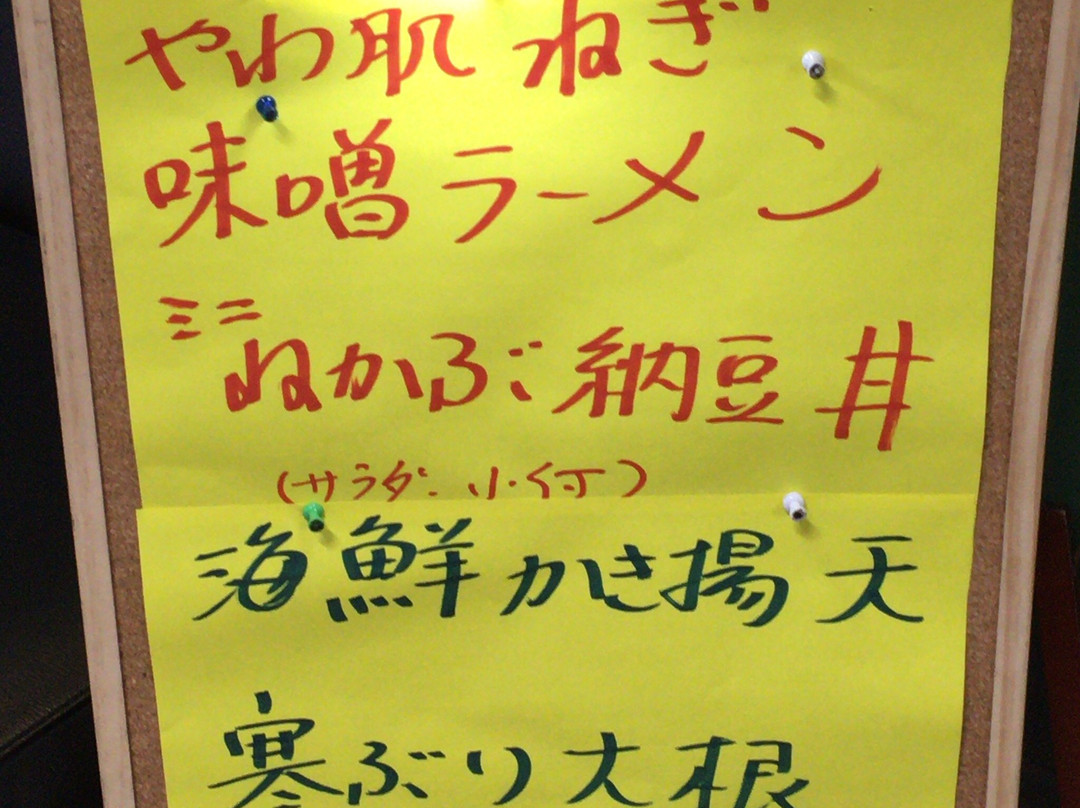 やわ肌ねぎ
味噌ラーメン
ミニ
めかぶ納豆丼
(サラダ.小付)
海鮮かき揚天
寒ぶり大根